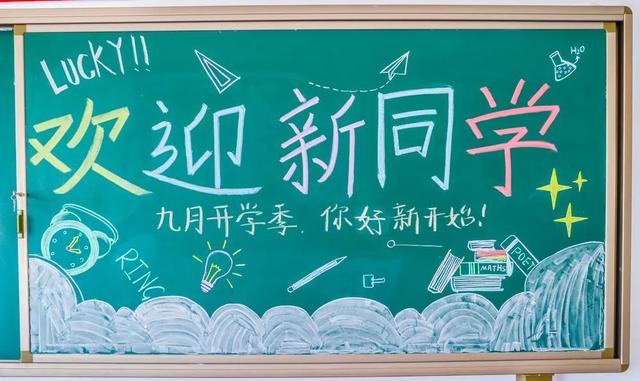 LUCKY!!
H₂O
欢迎新同学
九月开学季.你好新开始!
RING
POET
MATHS